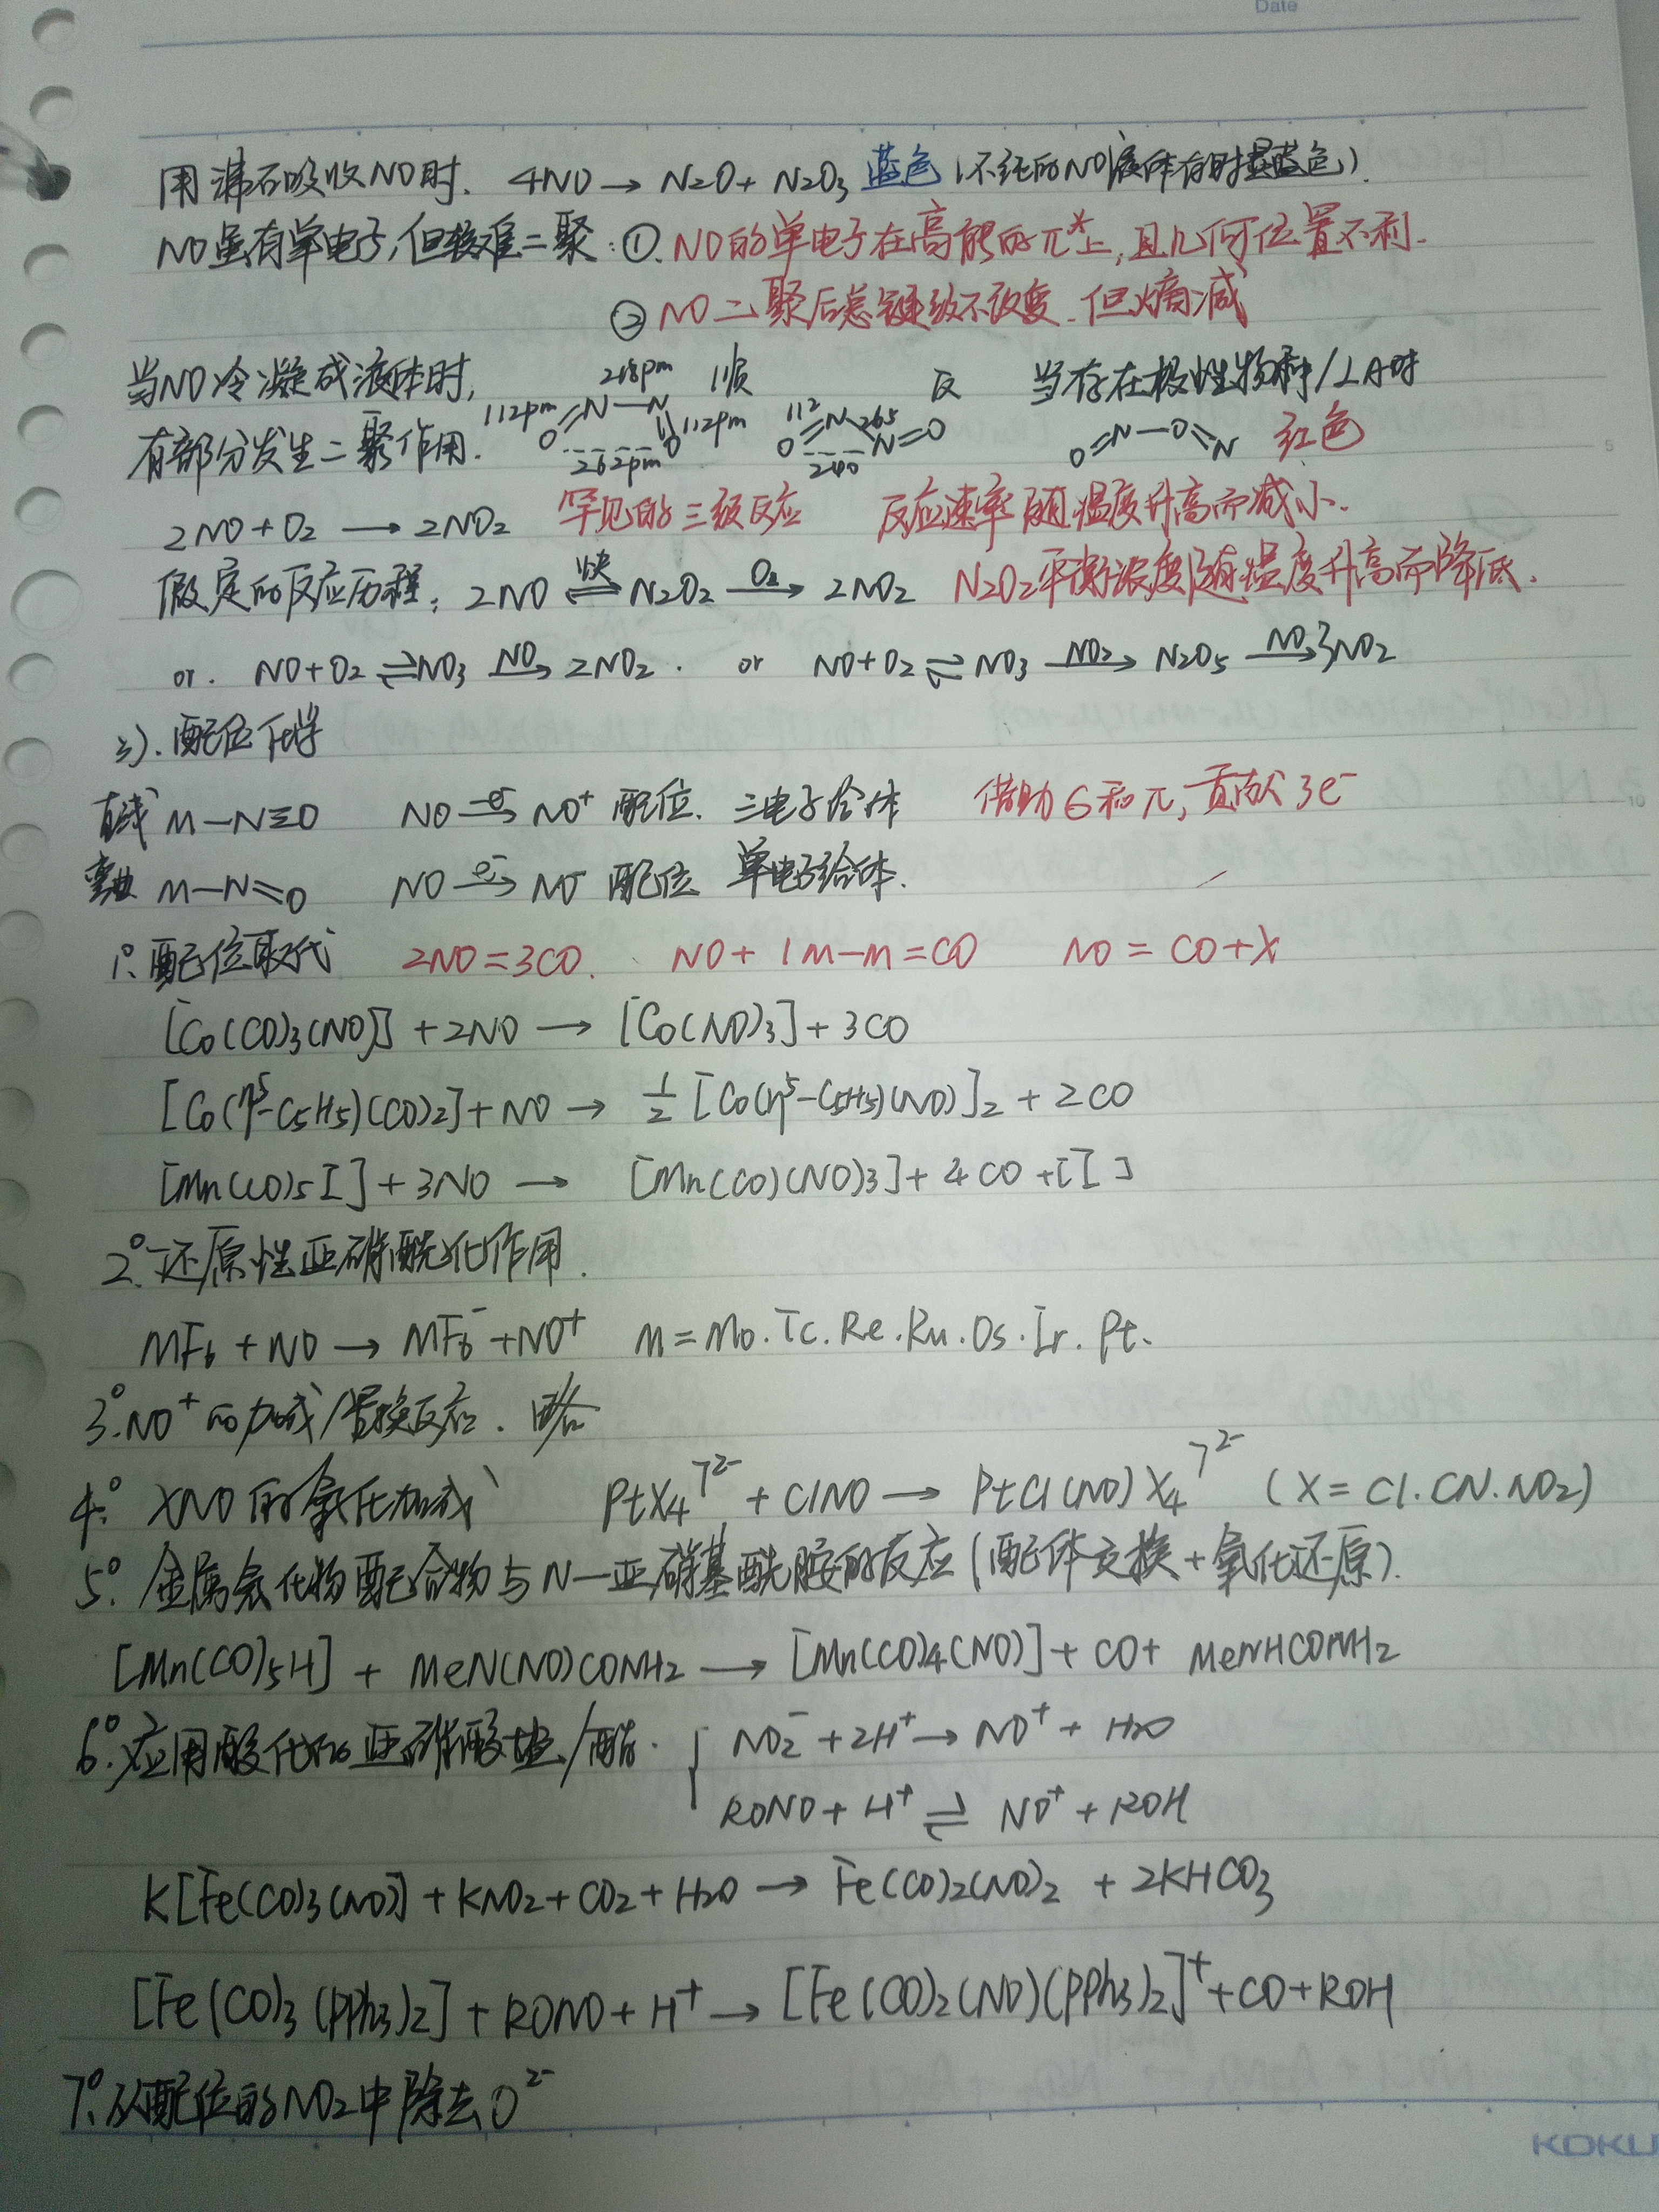 Date
用沸石吸收NO时. 4NO → N2O + N2O3 蓝色 (不纯的NO液体有时显蓝色).
NO虽有单电子,但较难二聚: ①. NO的单电子在高能的π*上,且几何位置不利.
② NO二聚后总键级不改变. 但熵减
当NO冷凝成液体时, 218pm 顺 反 当存在极性物种/LA时
112pm O=N—N 112pm O 112 O=N 265 N=O O=N—O=N 红色
有部分发生二聚作用. 262pm 240
2NO + O2 → 2NO2 罕见的三级反应 反应速率随温度升高而减小.
假定的反应历程: 2NO ⇌(快) N2O2 —O2→ 2NO2 N2O2平衡浓度随温度升高而降低.
or. NO+O2 ⇌ NO3 —NO→ 2NO2. or NO+O2 ⇌ NO3 —NO2→ N2O5 —NO→ 3NO2
3). 配位化学
直线 M—N≡O NO —-e⁻→ NO⁺ 配位. 三电子给体 借助σ和π,贡献3e⁻
弯曲 M—N=O NO —e⁻→ NO⁻ 配位 单电子给体.
1°. 配位取代 2NO=3CO. NO + 1M—M = CO NO = CO+X
[Co(CO)3(NO)] + 2NO → [Co(NO)3] + 3CO
[Co(η⁵-C5H5)(CO)2] + NO → 1/2 [Co(η⁵-C5H5)(NO)]2 + 2CO
[Mn(CO)5I] + 3NO → [Mn(CO)(NO)3] + 4CO + [I]
2°. 还原性亚硝酰化作用.
MF6 + NO → MF6⁻ + NO⁺ M = Mo. Tc. Re. Ru. Os. Ir. Pt.
3°. NO⁺的加成/置换反应. 略
4°. XNO的氧化加成 PtX4]²⁻ + ClNO → PtCl(NO)X4]²⁻ (X = Cl. CN. NO2)
5°. 金属氢化物配合物与N-亚硝基酰胺的反应(配体交换+氧化还原).
[Mn(CO)5H] + MeN(NO)CONH2 → [Mn(CO)4(NO)] + CO + MeNHCONH2
6°. 应用酸化的亚硝酸盐/酯. { NO2⁻ + 2H⁺ → NO⁺ + H2O
RONO + H⁺ ⇌ NO⁺ + ROH
K[Fe(CO)3(NO)] + KNO2 + CO2 + H2O → Fe(CO)2(NO)2 + 2KHCO3
[Fe(CO)3(PPh3)2] + RONO + H⁺ → [Fe(CO)2(NO)(PPh3)2]⁺ + CO + ROH
7°. 从配位的NO2中除去O²⁻
KOKU